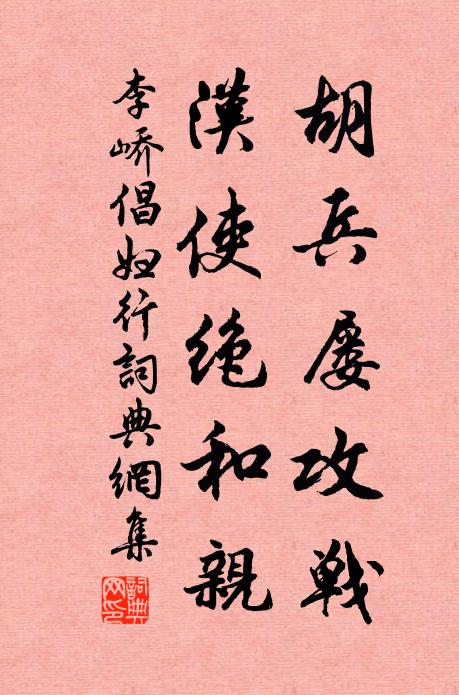 胡兵屡攻戦
漢使绝和親
李峤倡妇行詞典網集
詞典网印